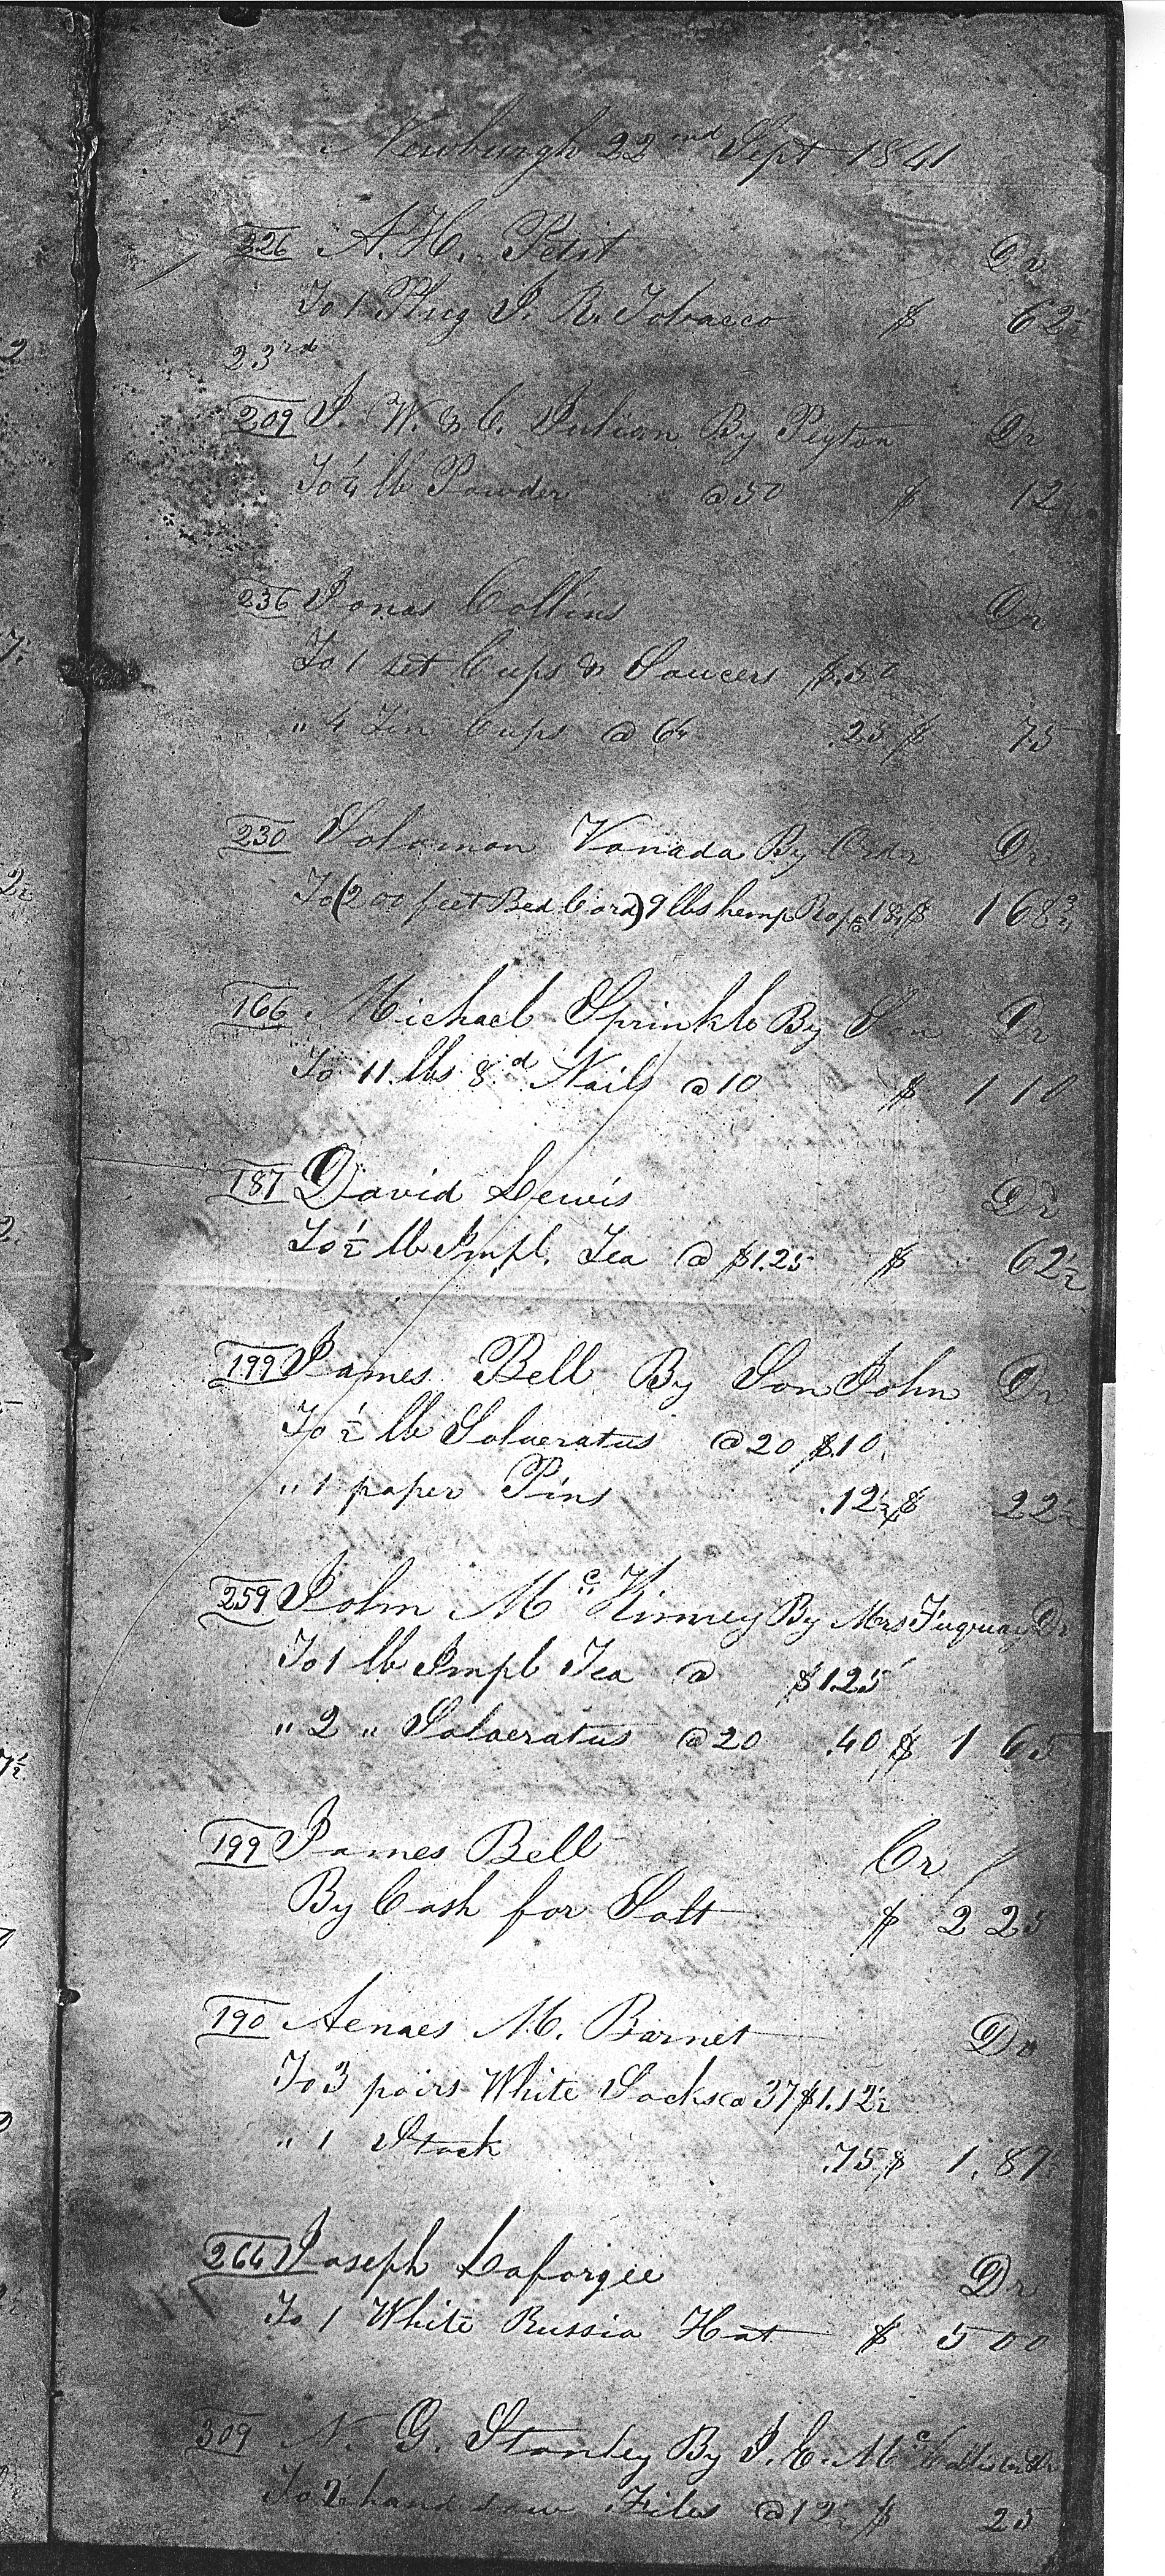 Newburgh 22nd Sept 1841
226 A. H. Petit Dr
To 1 Plug J. R. Tobacco $ 62½
23rd
209 J. W. & C. Julian By Pigton Dr
To ¼ lb Powder @ 50 $ 12½
236 Jonas Collins Dr
To 1 set Cups & Saucers $.50
" 4 Tin Cups @ 6¼ .25 $ 75
230 Solomon Vanada By Order Dr
To (200 feet Bed Cord) 9 lbs hemp Rope @ 18¾ $ 1 68¾
166 Michael Sprinkle By Son Dr
To 11 lbs 8d Nails @ 10 $ 1 10
187 David Lewis Dr
To ½ lb Impl. Tea @ $1.25 $ 62½
199 James Bell By Son John Dr
To ½ lb Salaeratus @ 20 $.10
" 1 paper Pins .12½ $ 22½
259 John Mc Kinney By Mrs Fuquay Dr
To 1 lb Impl Tea @ $1.25
" 2 " Salaeratus @ 20 .40 $ 1 65
199 James Bell Cr
By Cash for Salt $ 2 25
190 Aenaes M. Barnet Dr
To 3 pairs White Socks @ 37 $1.12½
" 1 Stock .75 $ 1.87½
264 Joseph Laforgee Dr
To 1 White Russia Hat $ 5 00
309 N. G. Stanley By J. E. Mc Dr
To 2 hand saw Files @ 12½ $ 25